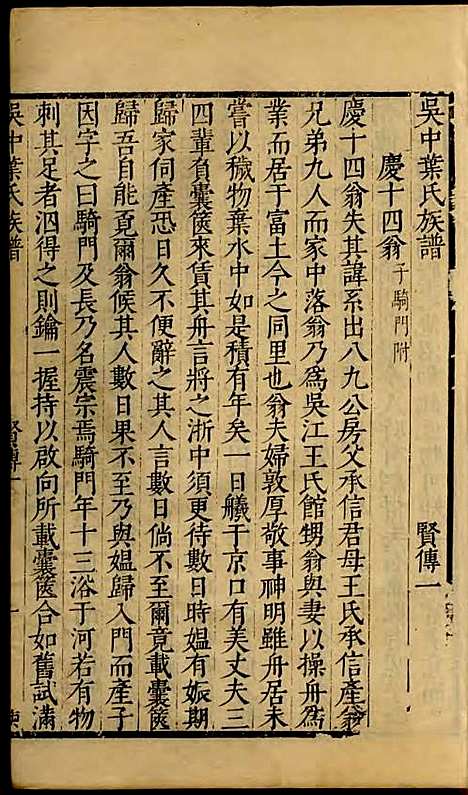 吳中葉氏族譜 賢傳一
慶十四翁 子騎門附
慶十四翁失其諱系出八九公房父承信君母王氏承信產翁
兄弟九人而家中落翁乃為吳江王氏館甥翁與妻以操舟為
業而居于富土今之同里也翁夫婦敦厚敬事神明雖舟居未
嘗以穢物棄水中如是積有年矣一日艤于京口有美丈夫三
四輩負囊篋來賃其舟言將之浙中須更待數日時媼有娠期
歸家伺產恐日久不便辭之其人言數日倘不至爾竟載囊篋
歸吾自能覔爾翁候其人數日果不至乃與媼歸入門而產子
因字之曰騎門及長乃名震宗焉騎門年十三浴于河若有物
刺其足者泅得之則鑰一握持以啟向所載囊篋合如舊試滿
吳中葉氏族譜 賢傳一 一